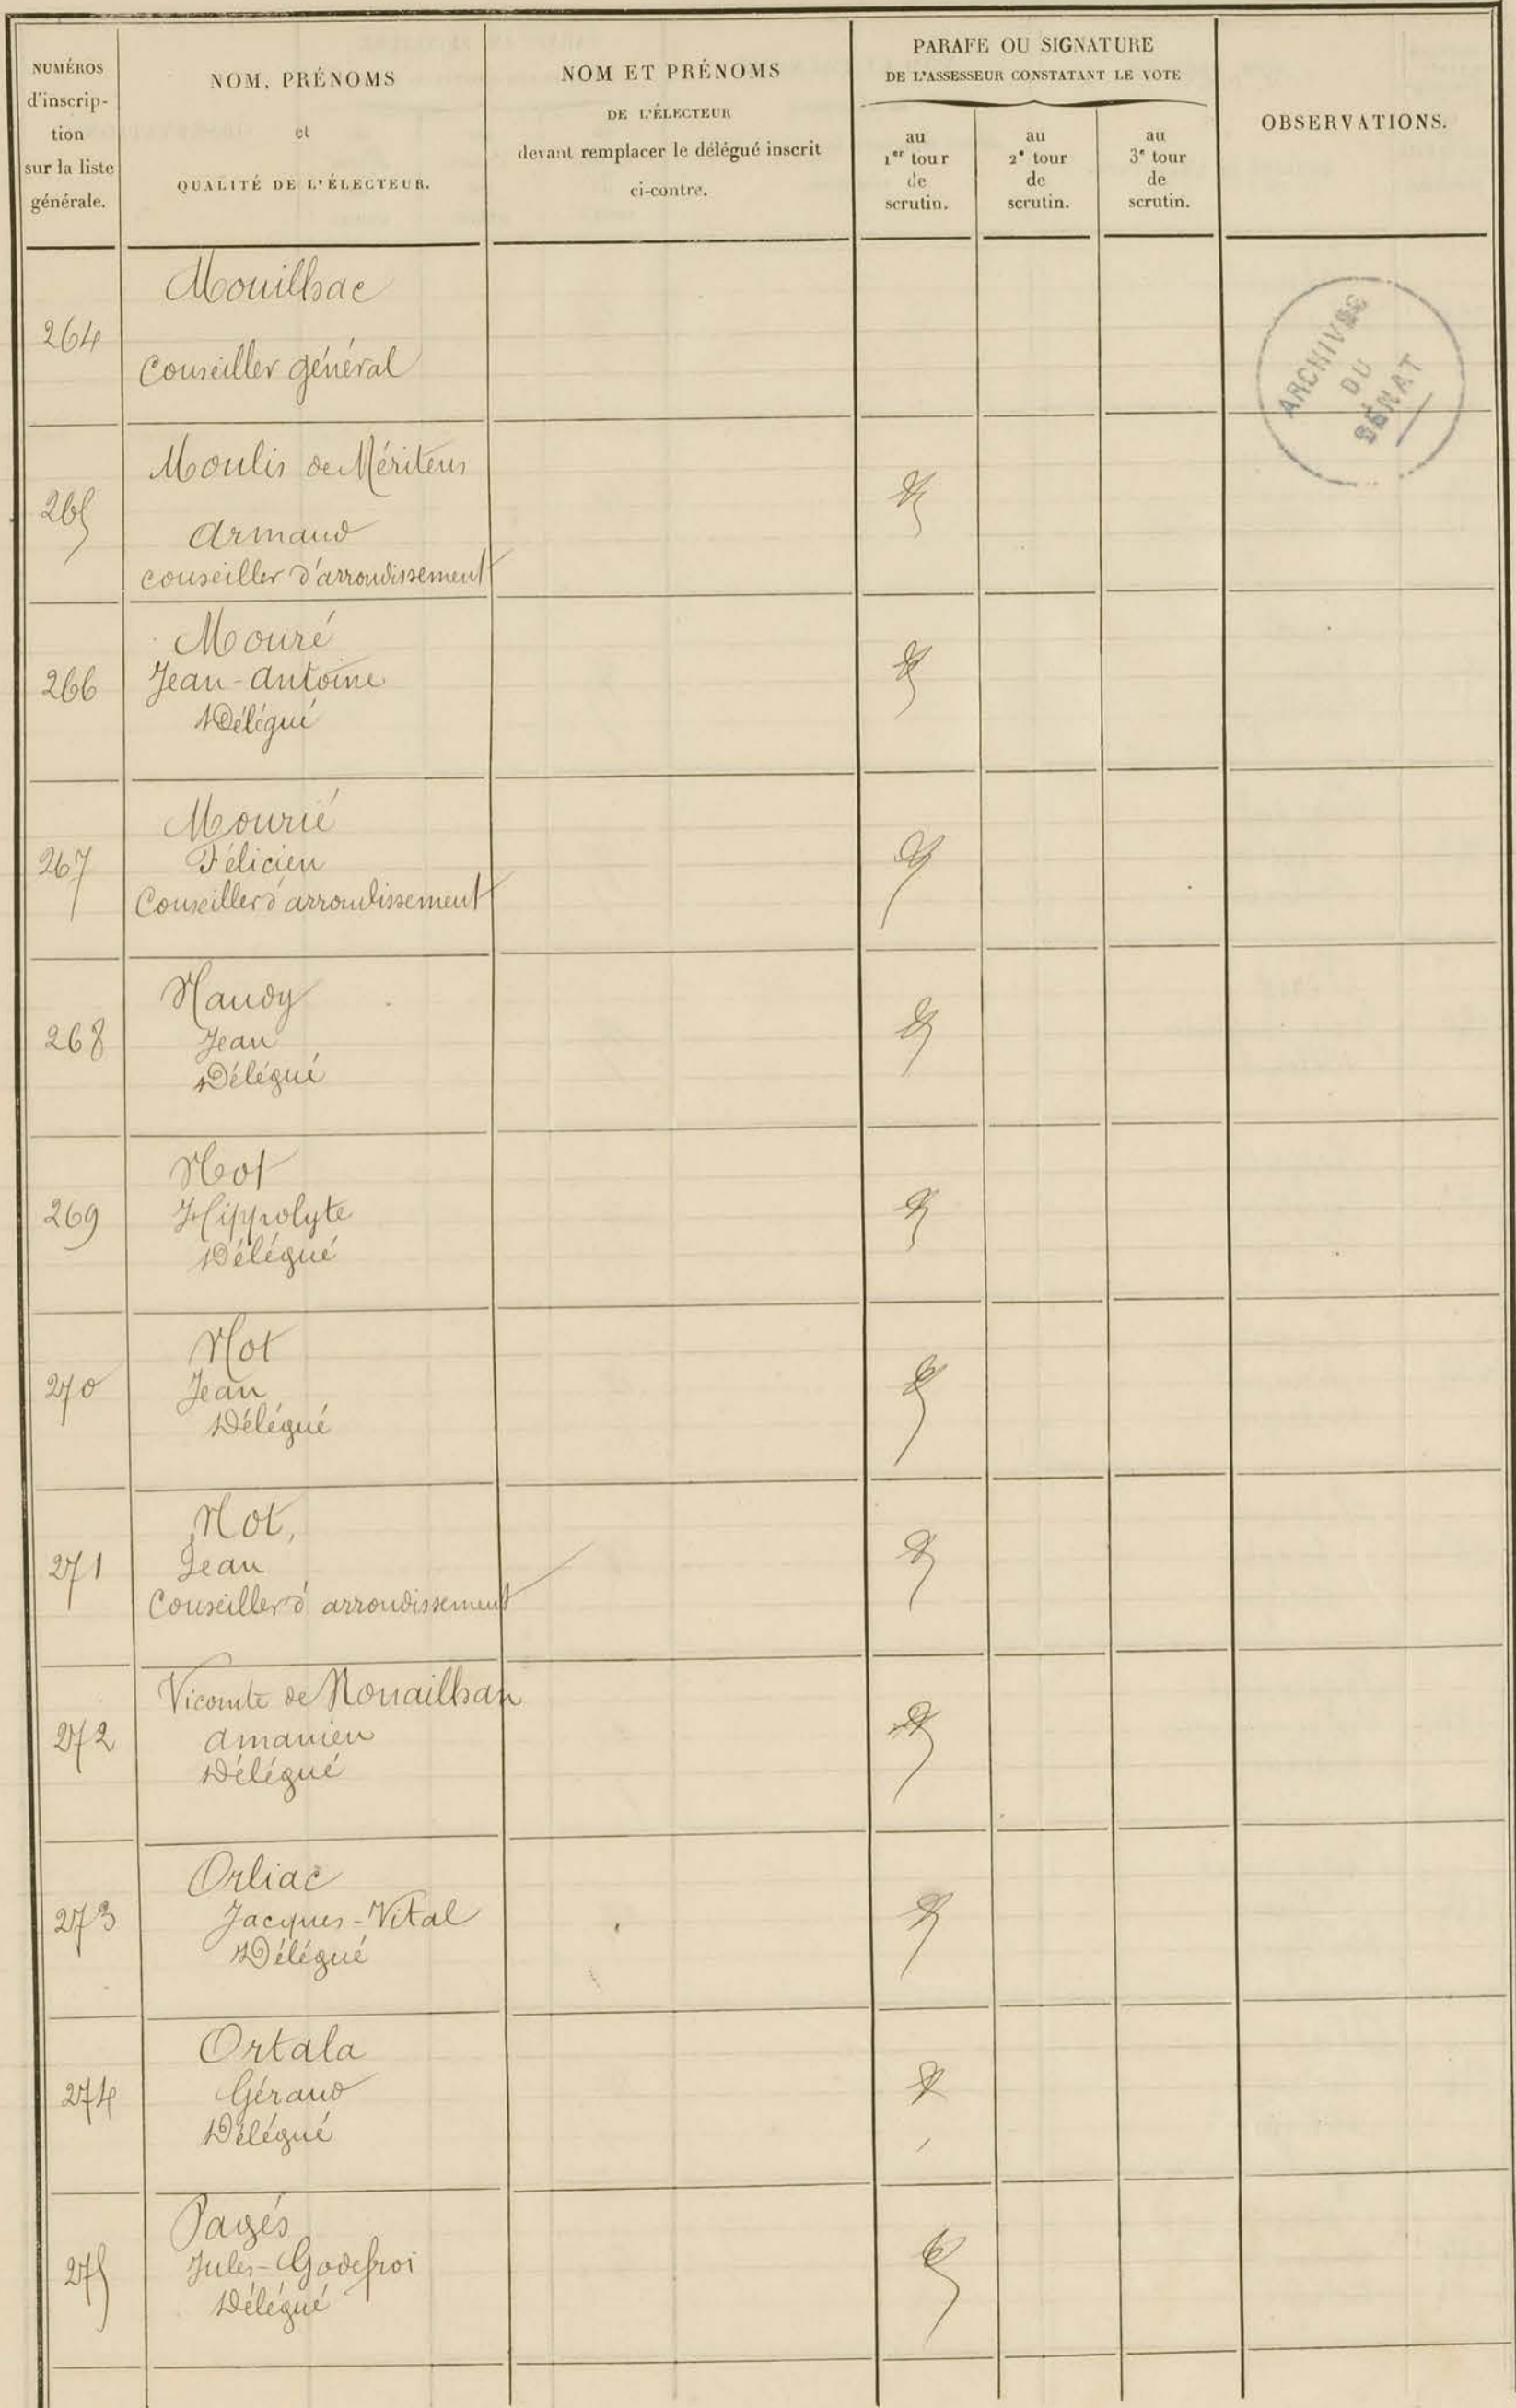 NUMÉROS
d'inscrip-
tion
sur la liste
générale.
NOM, PRÉNOMS
et
QUALITÉ DE L'ÉLECTEUR.
NOM ET PRÉNOMS
DE L'ÉLECTEUR
devant remplacer le délégué inscrit
ci-contre.
PARAFE OU SIGNATURE
DE L'ASSESSEUR CONSTATANT LE VOTE
au
1er tour
de
scrutin.
au
2e tour
de
scrutin.
au
3e tour
de
scrutin.
OBSERVATIONS.
ARCHIVES
DU
SÉNAT
264
Mouilhac
Conseiller général
265
Moulis de Méritens
Armand
conseiller d'arrondissement
266
Mouré
Jean-Antoine
Délégué
267
Mourié
Félicien
Conseiller d'arrondissement
268
Naudy
Jean
Délégué
269
Not
Hippolyte
Délégué
270
Not
Jean
Délégué
271
Not,
Jean
Conseiller d'arrondissement
272
Vicomte de Nouailhan
Amanieu
Délégué
273
Orliac
Jacques-Vital
Délégué
274
Ortala
Géraud
Délégué
275
Pagés
Jules-Godefroi
Délégué